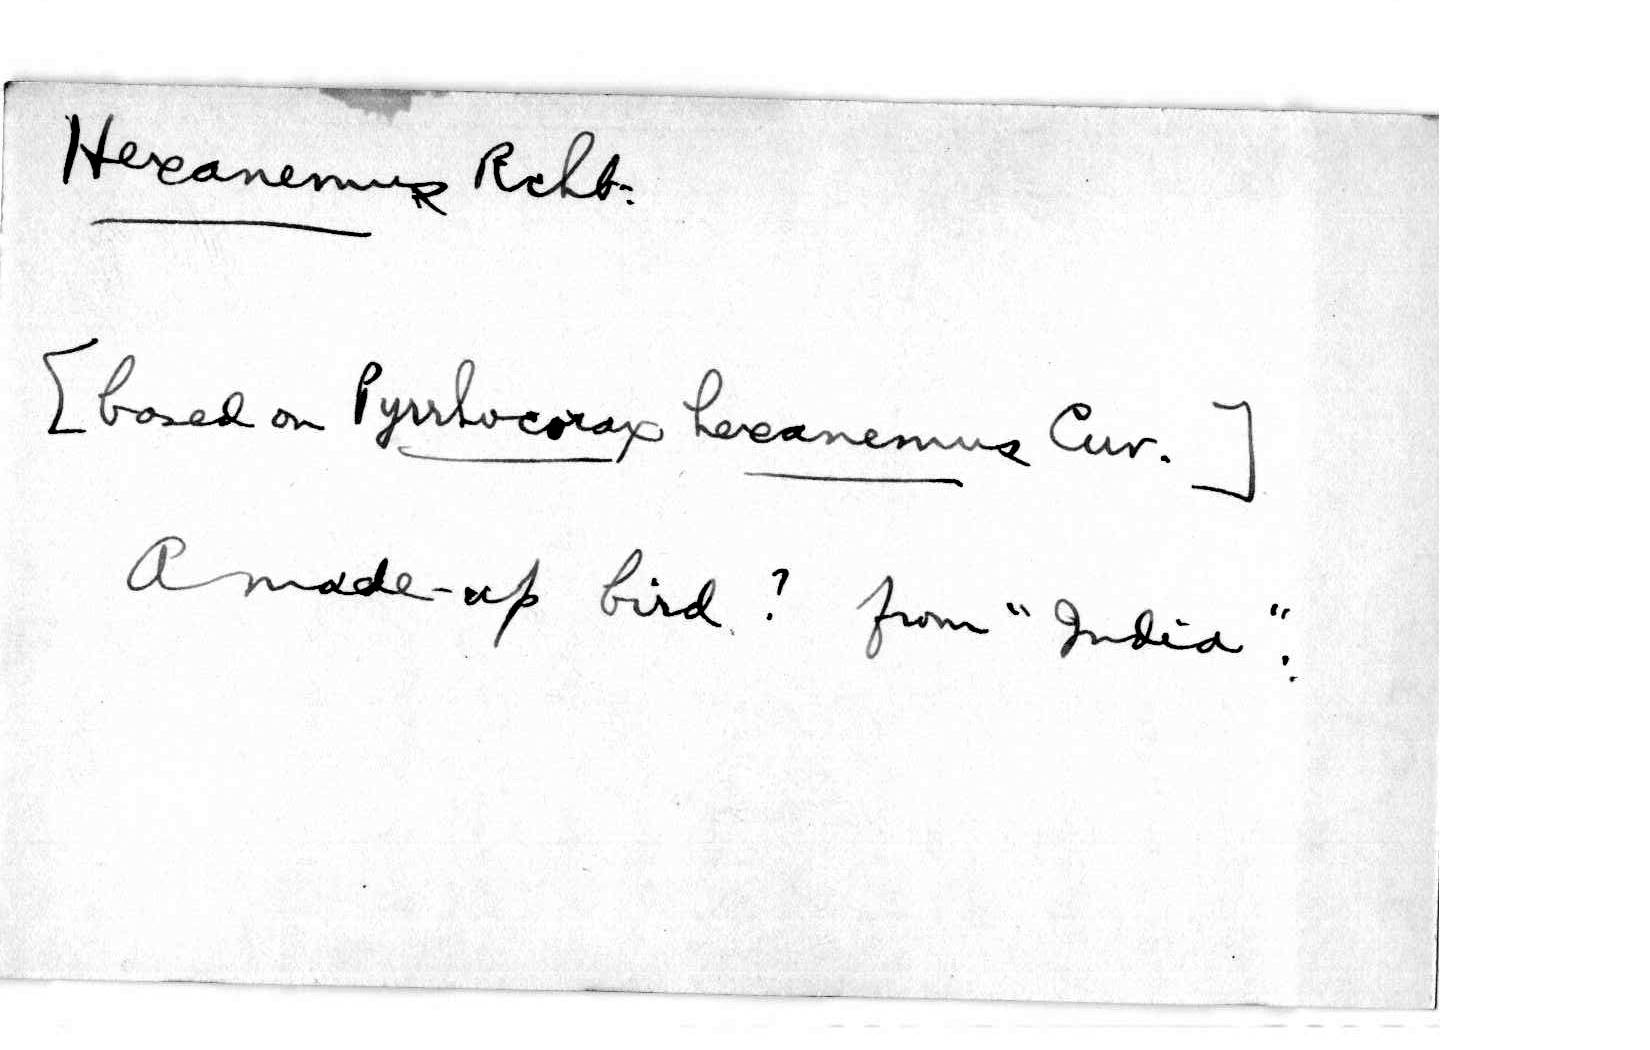 Hexanemus Rchb.
[based on Pyrrhocorax hexanemus Cuv.]
A made-up bird? from "India".